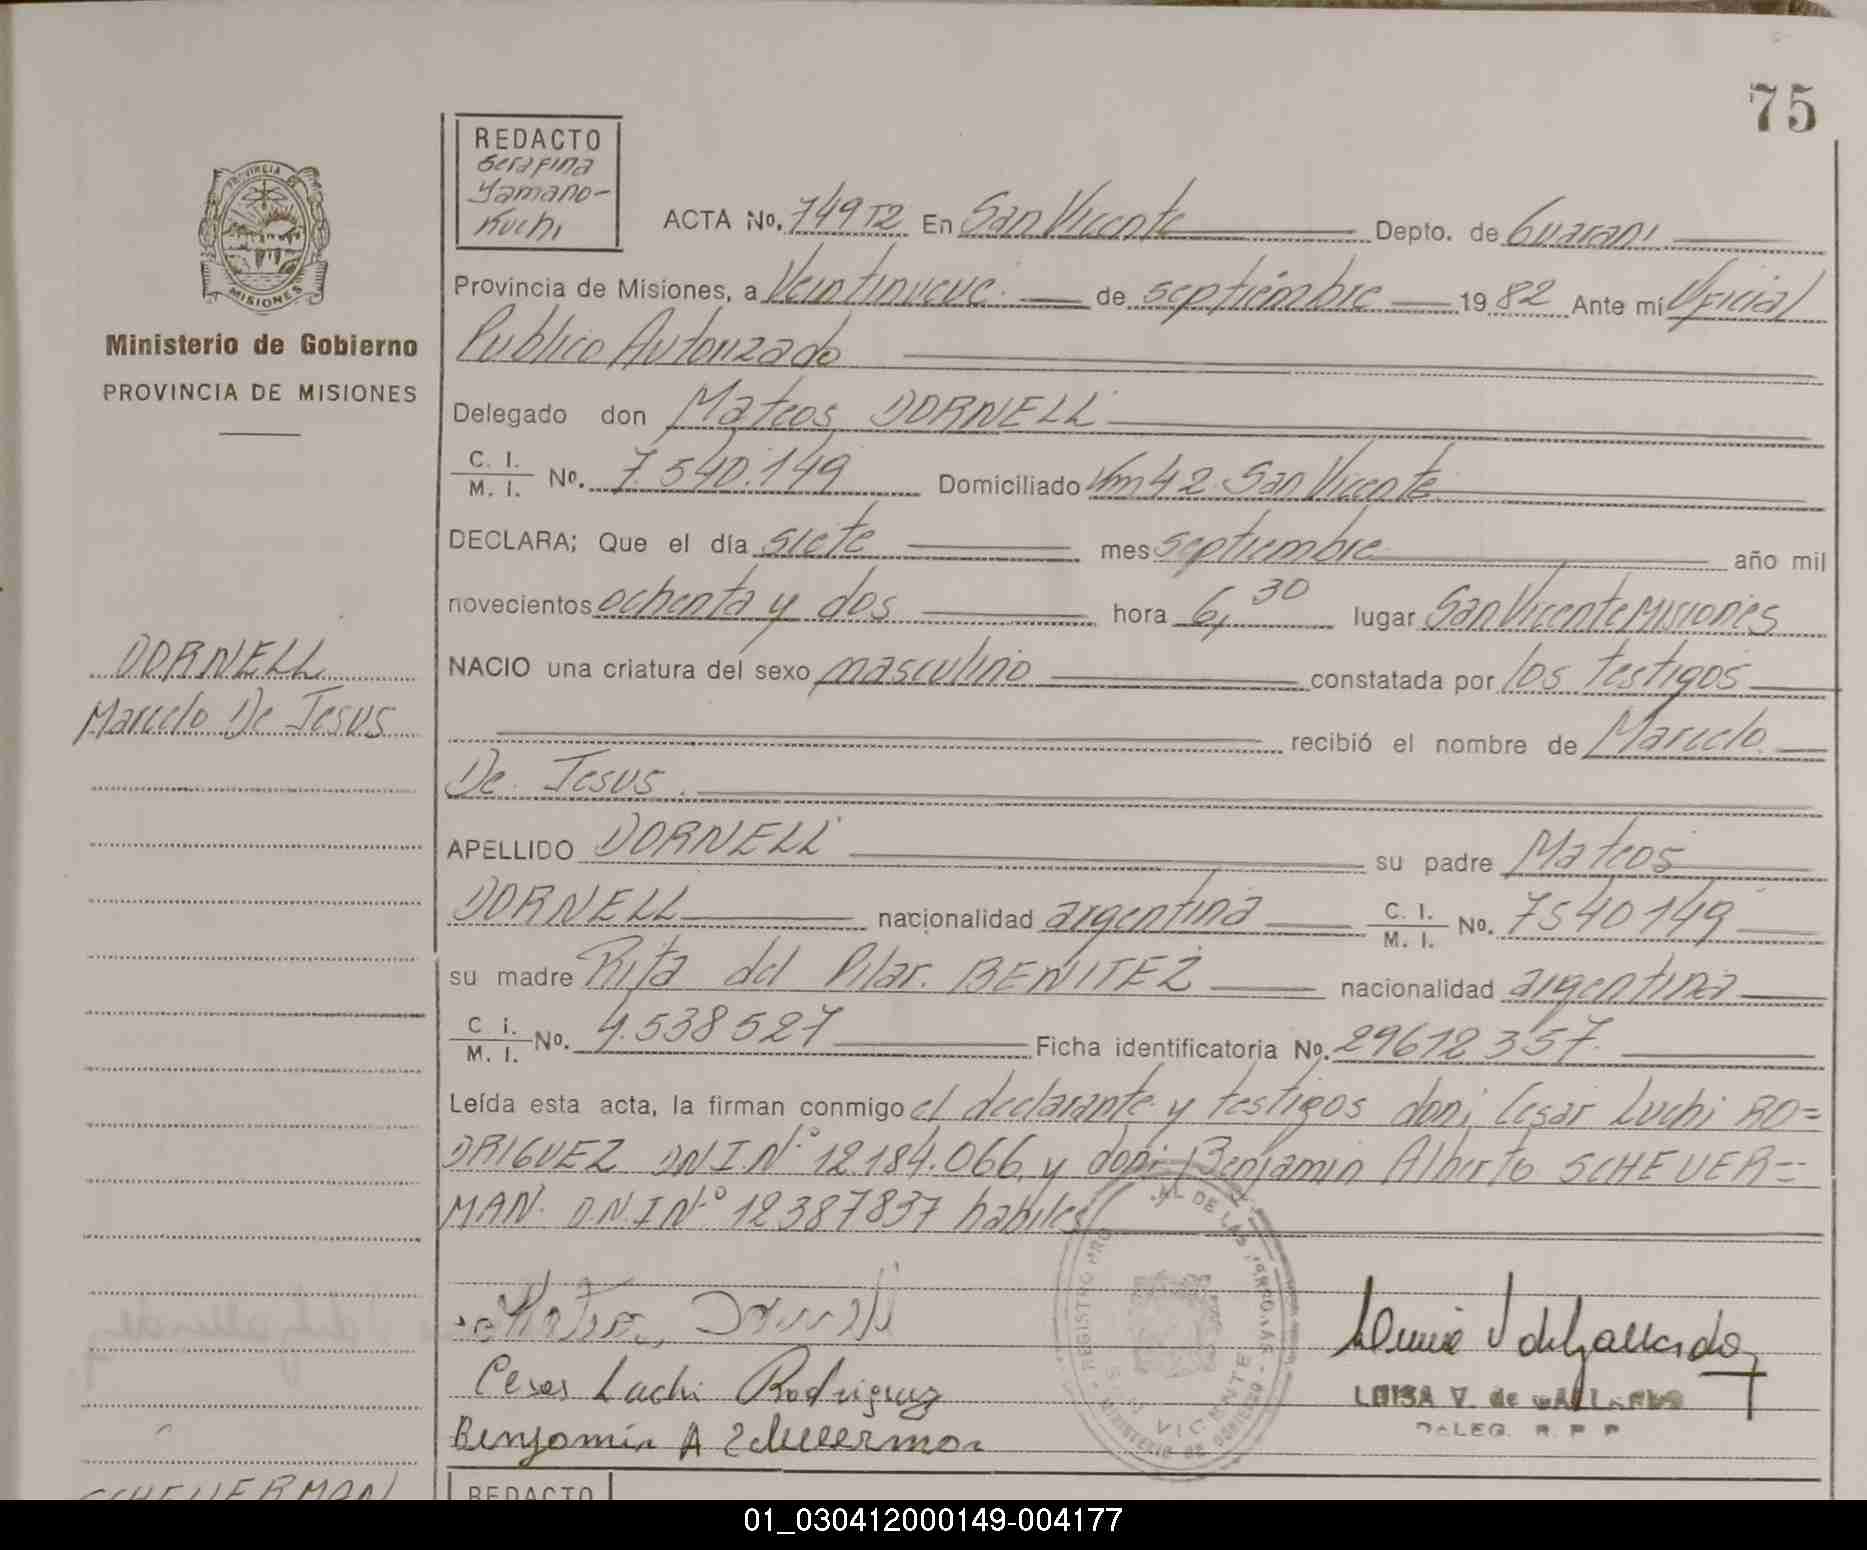 75
REDACTO
Serafina
Yamano-
Kuchi
PROVINCIA DE
MISIONES
Ministerio de Gobierno
PROVINCIA DE MISIONES
DORNELL
Marcelo De Jesus
ACTA No. 749 T2 En San Vicente Depto. de Guarani
Provincia de Misiones, a Veintinueve de septiembre 1982 Ante mí Oficial
Publico Autorizado
Delegado don Mateos DORNELL
C. I. / M. I. No. 7.540.149 Domiciliado Km 42 San Vicente
DECLARA; Que el día siete mes septiembre año mil
novecientos ochenta y dos hora 6,30 lugar San Vicente Misiones
NACIO una criatura del sexo masculino constatada por los testigos
recibió el nombre de Marcelo
De Jesus.
APELLIDO DORNELL su padre Mateos
DORNELL nacionalidad argentina C. I. / M. I. No. 7540149
su madre Rita del Pilar BENITEZ nacionalidad argentina
C. i. / M. I. No. 4.538527 Ficha identificatoria No. 29612357.
Leída esta acta, la firman conmigo el declarante y testigos don; Cesar Luchi RO=
DRIGUEZ DNI Nº 12184.066, y don; Benjamin Alberto SCHEUER=
MAN. D.N.I Nº 12387837 habiles
Cesar Luchi Rodriguez
Benjamin A Scheuerman
REGISTRO
DE LAS
VICENTE
MINISTERIO DE GOBIERNO
LUISA V. de GALLARDO
DELEG. R. P. P.
SCHEUERMAN
REDACTO
01_030412000149-004177